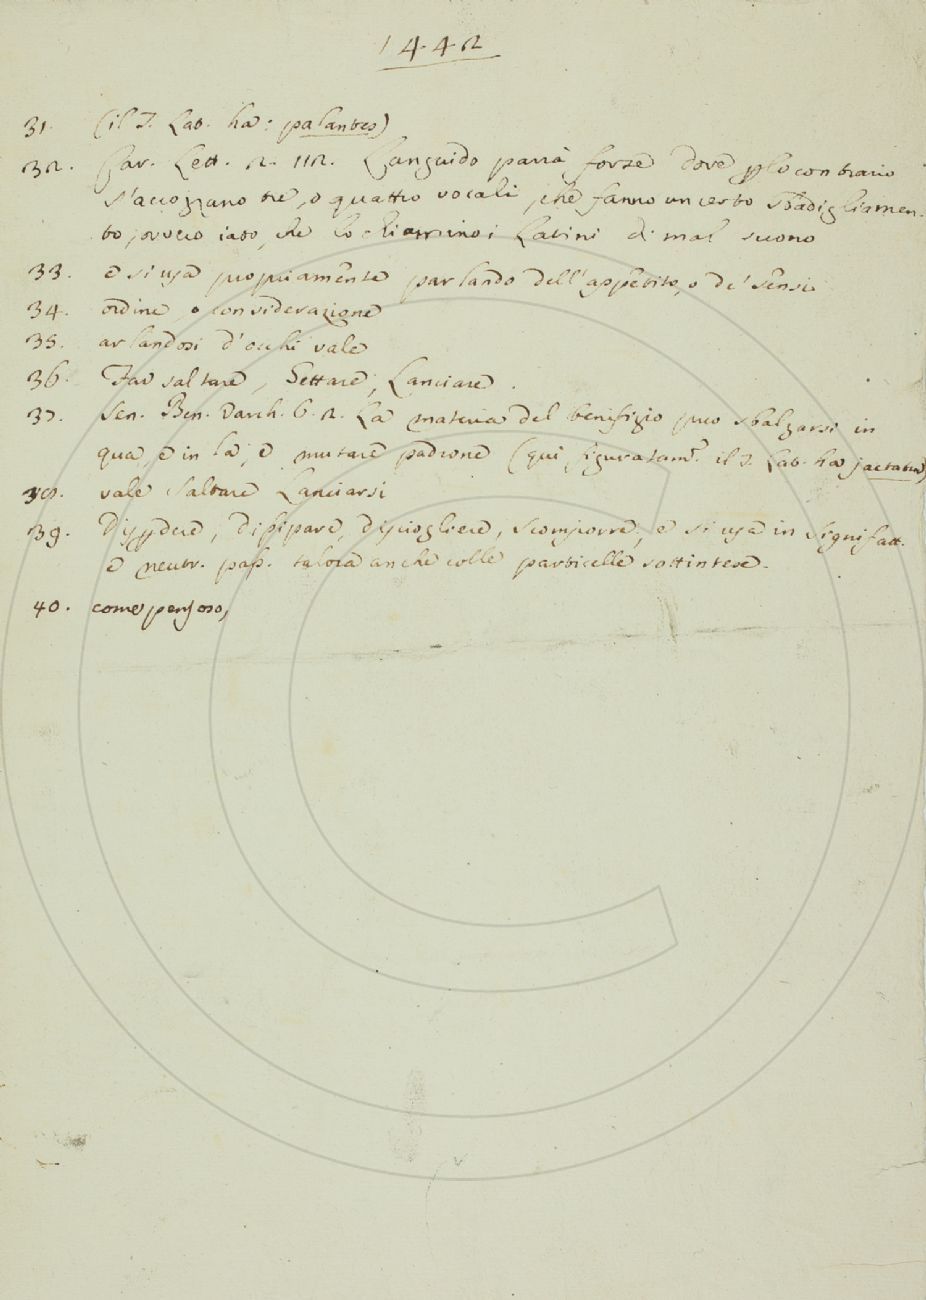 1442
31. (il T. Lat. ha: palantes)
32. Car. Lett. 2. 112. Languido parrà forse dove p lo contrario
s'accozzano tre, o quattro vocali, che fanno un certo sbadigliamen-
to, ovvero iato, che lo chiamino i Latini di mal suono
33. e si usa propriamente parlando dell'appetito, o de' sensi
34. ordine, o considerazione
35. arlandosi d'occhi vale
36. Far saltare, Gettare, Lanciare.
37. Sen. Ben. Varch. 6. 2. La materia del benifizio può sbalzarsi in
qua, e in là, e mutare padrone (qui figuratam. il T. Lat. ha jactatur)
38. vale Saltare Lanciarsi
39. Disperdere, dissipare, disciogliere, scomporre, e si usa in signif. att.
e neutr. pass. talora anche colle particelle sottintese.
40. come pensoso,